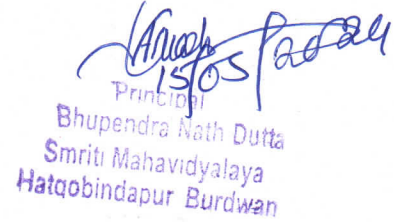 15/05/2024
Principal
Bhupendra Nath Dutta
Smriti Mahavidyalaya
Hatgobindapur Burdwan